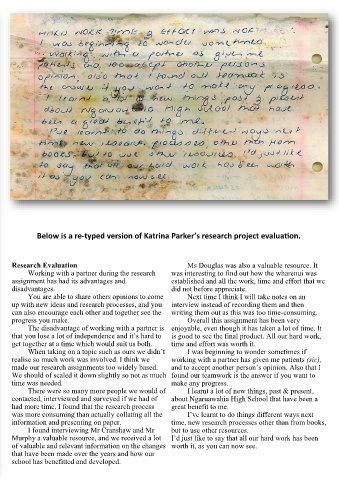 HARD WORK TIME & EFFORT WAS WORTH
I was beginning to wonder sometimes
working with a partner as given me
patients and to accept another persons
opinion, also that I found out teamwork is
the answer if you want to make any progress.
I learnt a lot of new things past & present
about Ngaruawahia High School that have
been a great benefit to me.
I've learnt to do things different ways next
time new research processes other than from
books but to use other resources. I'd just like
to say that all our hard work has been worth
it as you can now see.
Below is a re-typed version of Katrina Parker's research project evaluation.
Research Evaluation
Working with a partner during the research
assignment has had its advantages and
disadvantages.
You are able to share others opinions to come
up with new ideas and research processes, and you
can also encourage each other and together see the
progress you make.
The disadvantage of working with a partner is
that you lose a lot of independence and it's hard to
get together at a time which would suit to both.
When taking on a topic such as ours we didn't
realise so much work was involved. I think we
made our research assignments too widely based.
We should of scaled it down slightly so not as much
time was needed.
There were so many more people we would of
contacted, interviewed and surveyed if we had of
had more time. I found that the research process
was more consuming than actually collating all the
information and presenting on paper.
I found interviewing Mr Cranshaw and Mr
Murphy a valuable resource, and we received a lot
of valuable and relevant information on the changes
that have been made over the years and how our
school has benefitted and developed.
Ms Douglas was also a valuable resource. It
was interesting to find out how the wharenui was
established and all the work, time and effort that we
did not before appreciate.
Next time I think I will take notes on an
interview instead of recording them and then
writing them out as this was too time-consuming.
Overall this assignment has been very
enjoyable, even though it has taken a lot of time. It
is good to see the final product. All our hard work,
time and effort was worth it.
I was beginning to wonder sometimes if
working with a partner has given me patients (sic),
and to accept another person's opinion. Also that I
found our teamwork is the answer if you want to
make any progress.
I learnt a lot of new things, past & present,
about Ngaruawahia High School that have been a
great benefit to me.
I've learnt to do things different ways next
time, new research processes other than from books,
but to use other resources.
I'd just like to say that all our hard work has been
worth it, as you can now see.